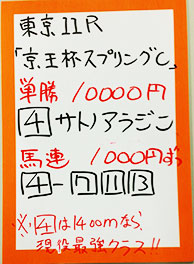 東京11R
「京王杯スプリングC」
単勝 10000円
4 サトノアラジン
馬連 1000円ずつ
4-7 11 13
※4は1400mなら
現役最強クラス!!